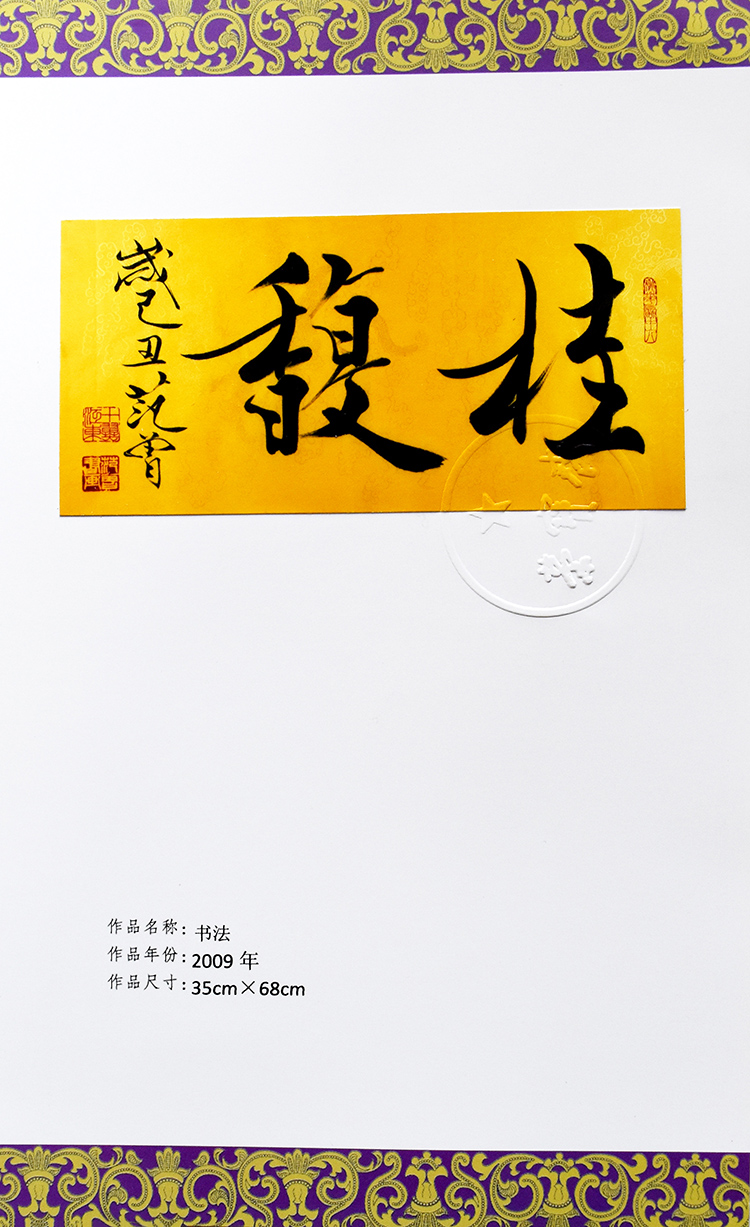 桂馥
歲己丑范曾
作品名称：书法
作品年份：2009 年
作品尺寸：35cm×68cm